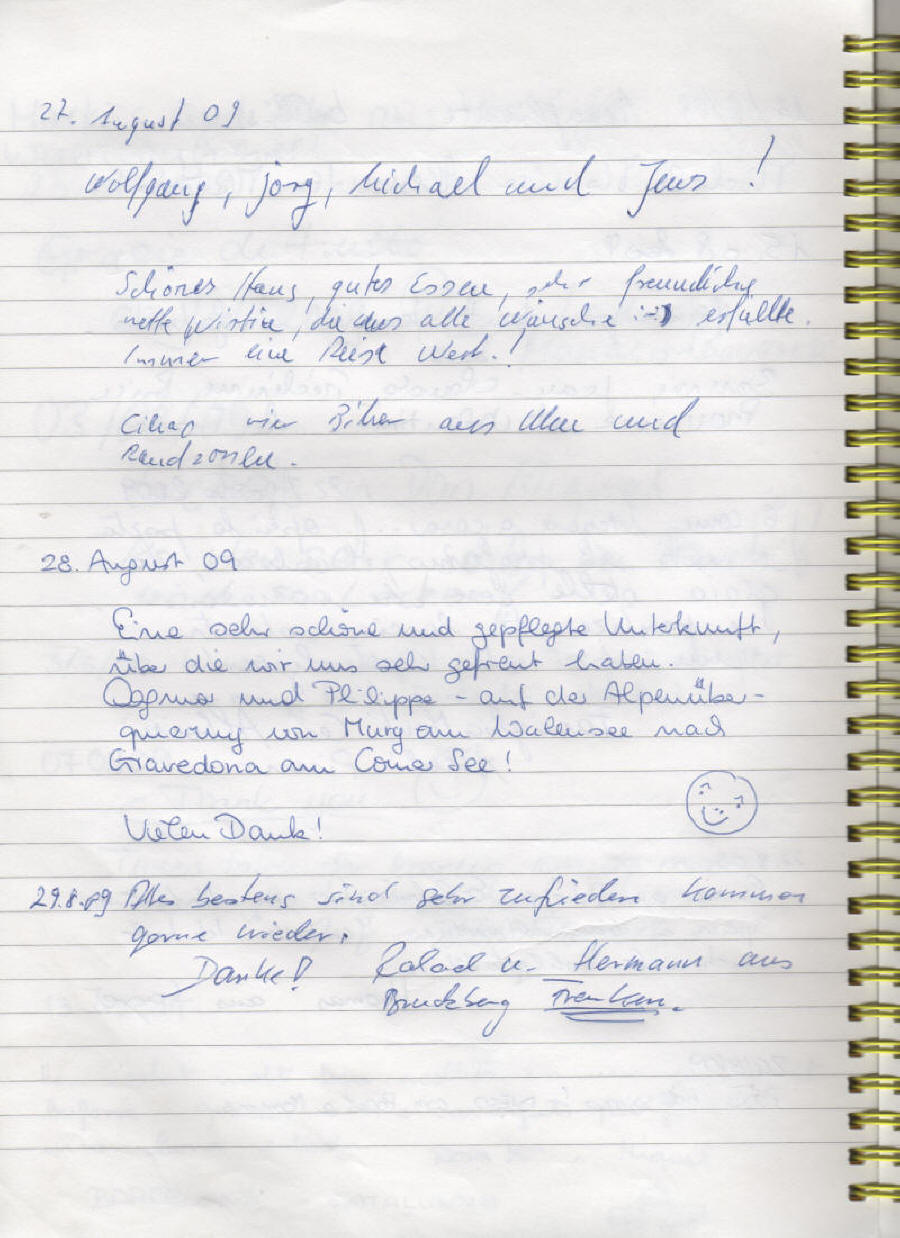 27. August 09
Wolfgang, Jörg, Michael und Jens !
Schönes Haus, gutes Essen, sehr freundliche
nette Wirtin, die uns alle Wünsche :-) erfüllte.
Immer eine Reise Wert.!
vier Biker aus Ulm und
28. August 09
Eine sehr schöne und gepflegte Unterkunft,
über die wir uns sehr gefreut haben.
Dagmar und Philippe - auf der Alpenüber-
querung von Murg am Walensee nach
Gravedona am Comer See!
Vielen Dank!
29.8.09 Alles bestens sind sehr zufrieden kommen
gerne wieder.
Danke! Roland u. Hermann aus
Bruckberg Franken.